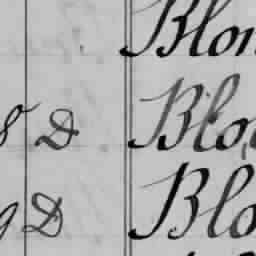 Blon
8 D Blo
9 D Blo